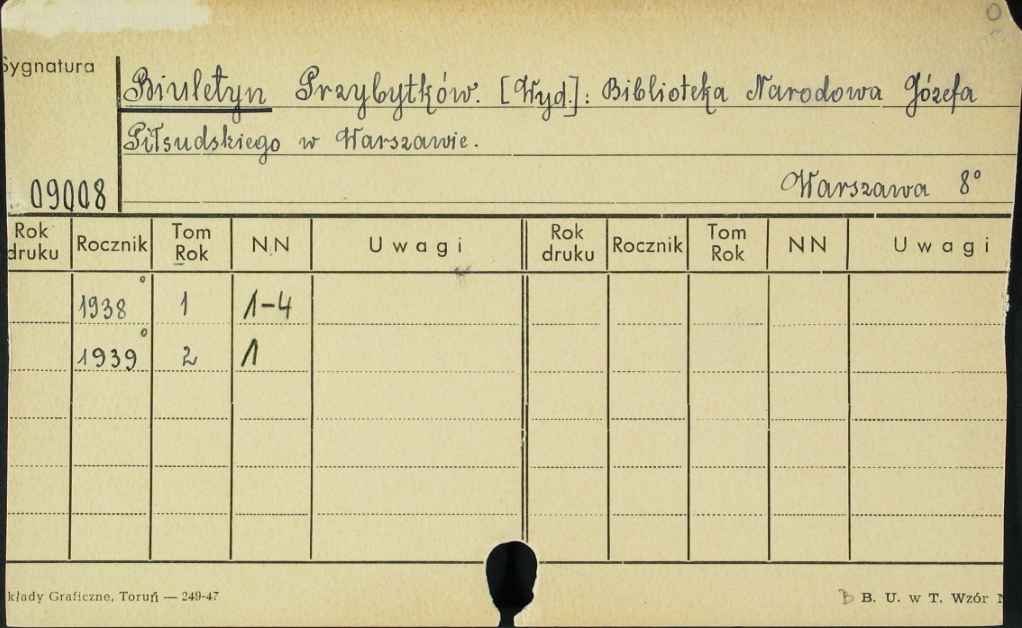 O
Sygnatura
Biuletyn Przybytków. [Wyd.]: Biblioteka Narodowa Józefa
Piłsudskiego w Warszawie.
09008
Warszawa 8°
Rok druku Rocznik Tom Rok NN Uwagi Rok druku Rocznik Tom Rok NN Uwagi
1938° 1 1-4
1939° 2 1
kłady Graficzne, Toruń — 249-47
B B. U. w T. Wzór N